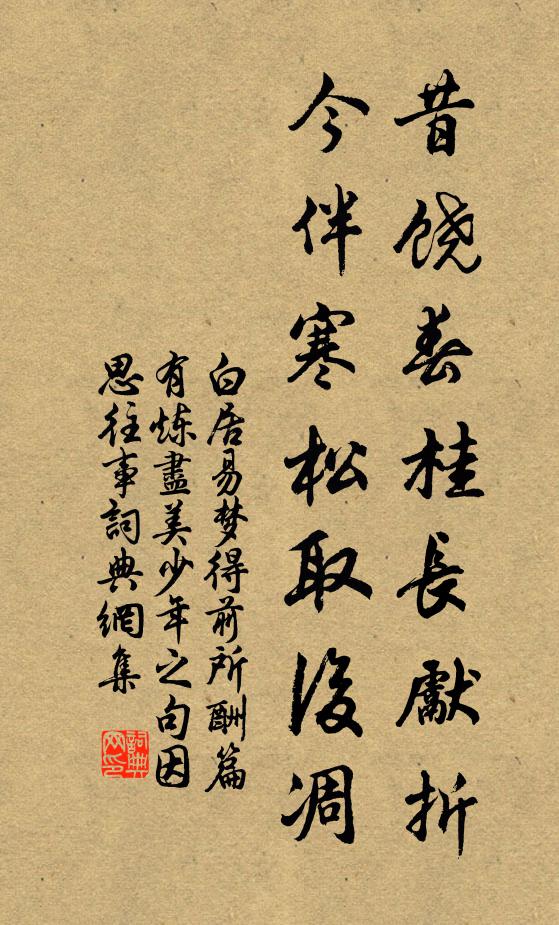 昔饶春桂長獻折
今伴寒松取後凋
白居易梦得前所酬篇
有炼盡美少年之句因
思往事詞典網集
詞典
网印